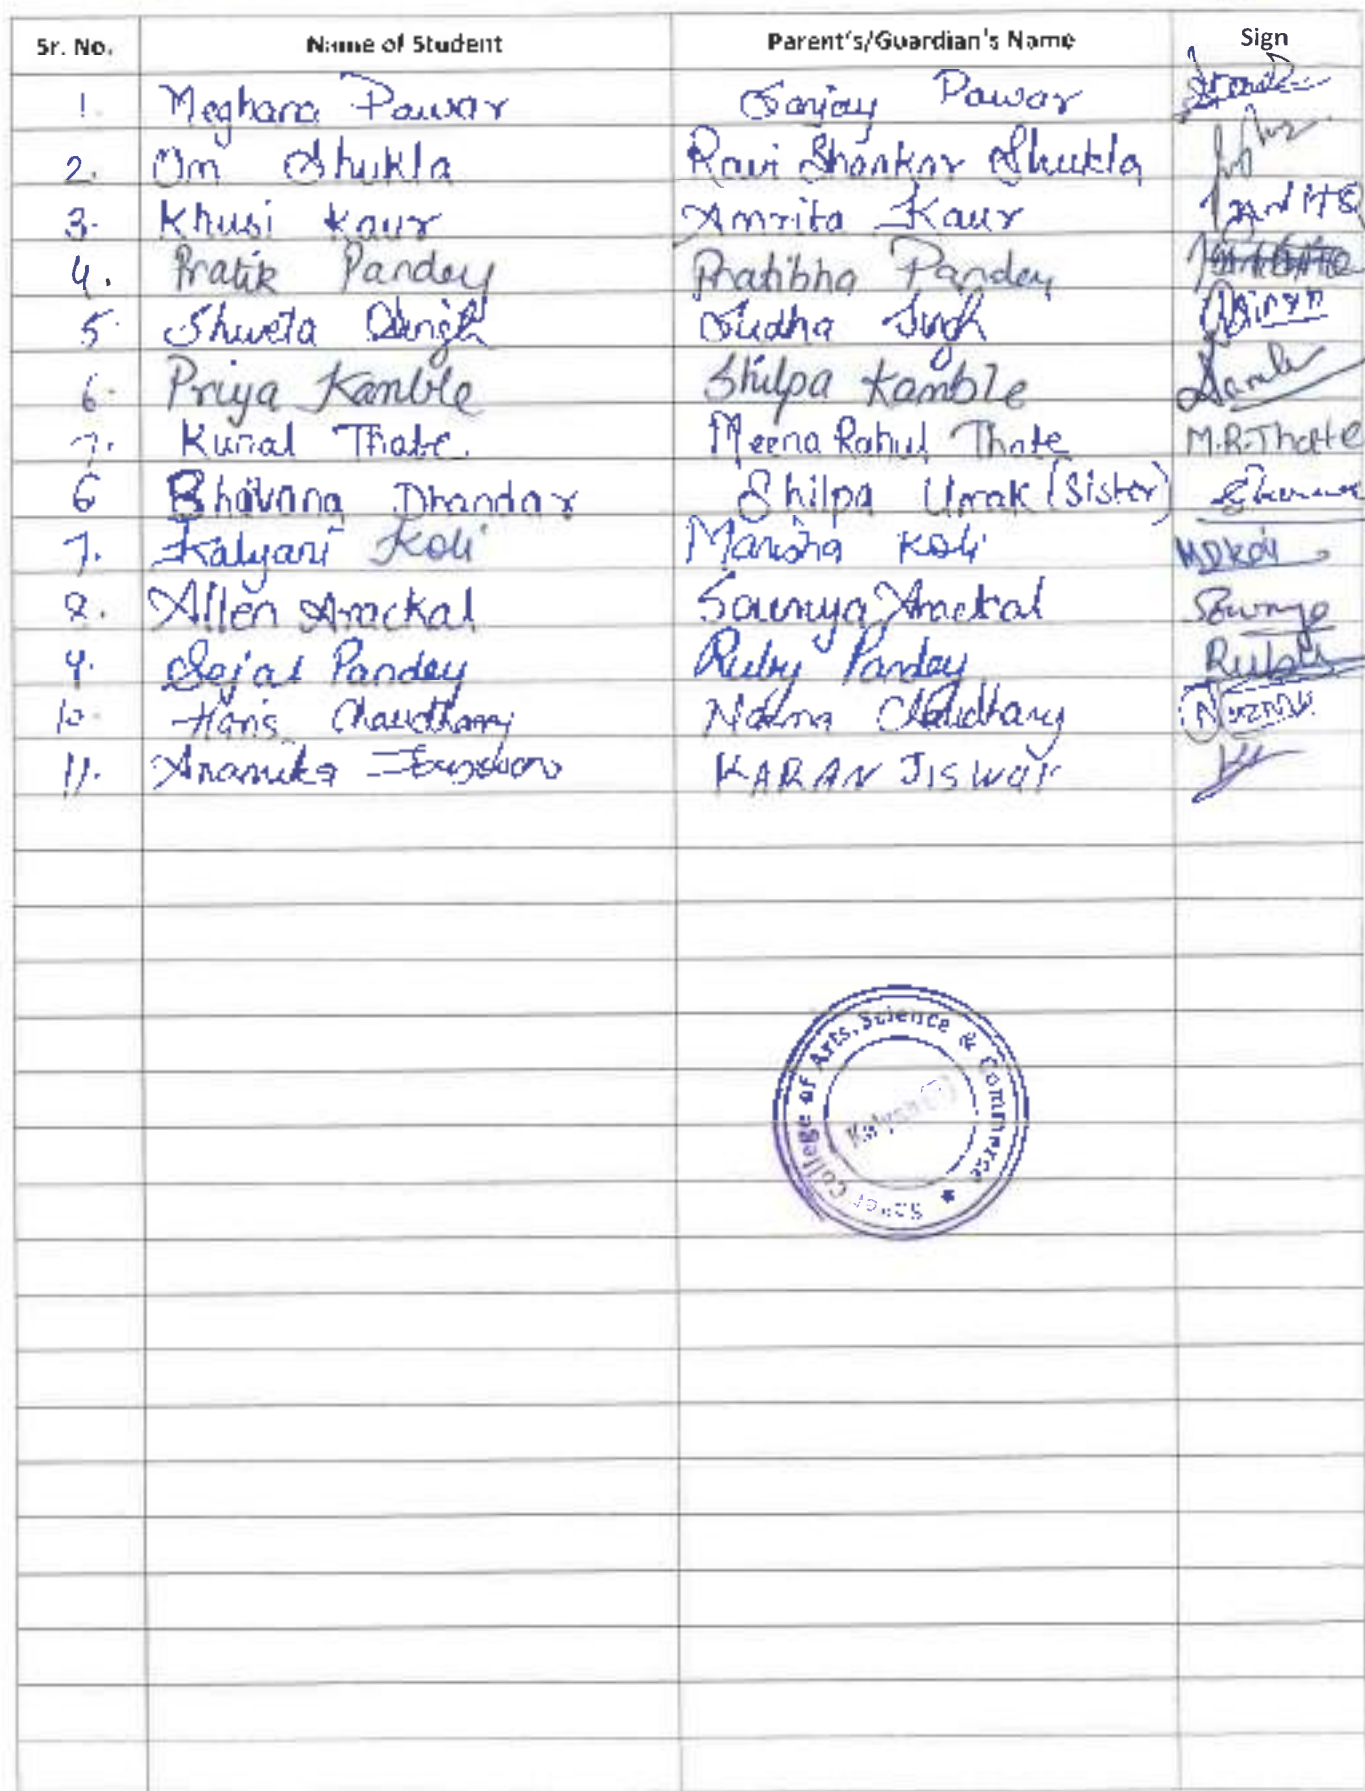 Sr. No. Name of Student Parent's/Guardian's Name Sign
1. Meghana Pawar Sanjay Pawar
2. Om Shukla Ravi Shankar Shukla
3. Khusi Kaur Amrita Kaur
4. Pratik Pandey Pratibha Pandey
5. Shweta Singh Sudha Singh
6. Priya Kamble Shilpa Kamble
7. Kunal Thate. Meena Rahul Thate M.R.Thate
6 Bhavana Dhandar Shilpa Umak (Sister)
7. Kalyani Koli Manisha Koli MDKoli
8. Allen Arackal Soumya Arackal Soumya
9. Sejal Pandey Ruby Pandey Ruby
10. Haris Chaudhary Chaudhary
11. Anamika KARAN JISWAR
College of Arts, Science & Commerce
Kalyan